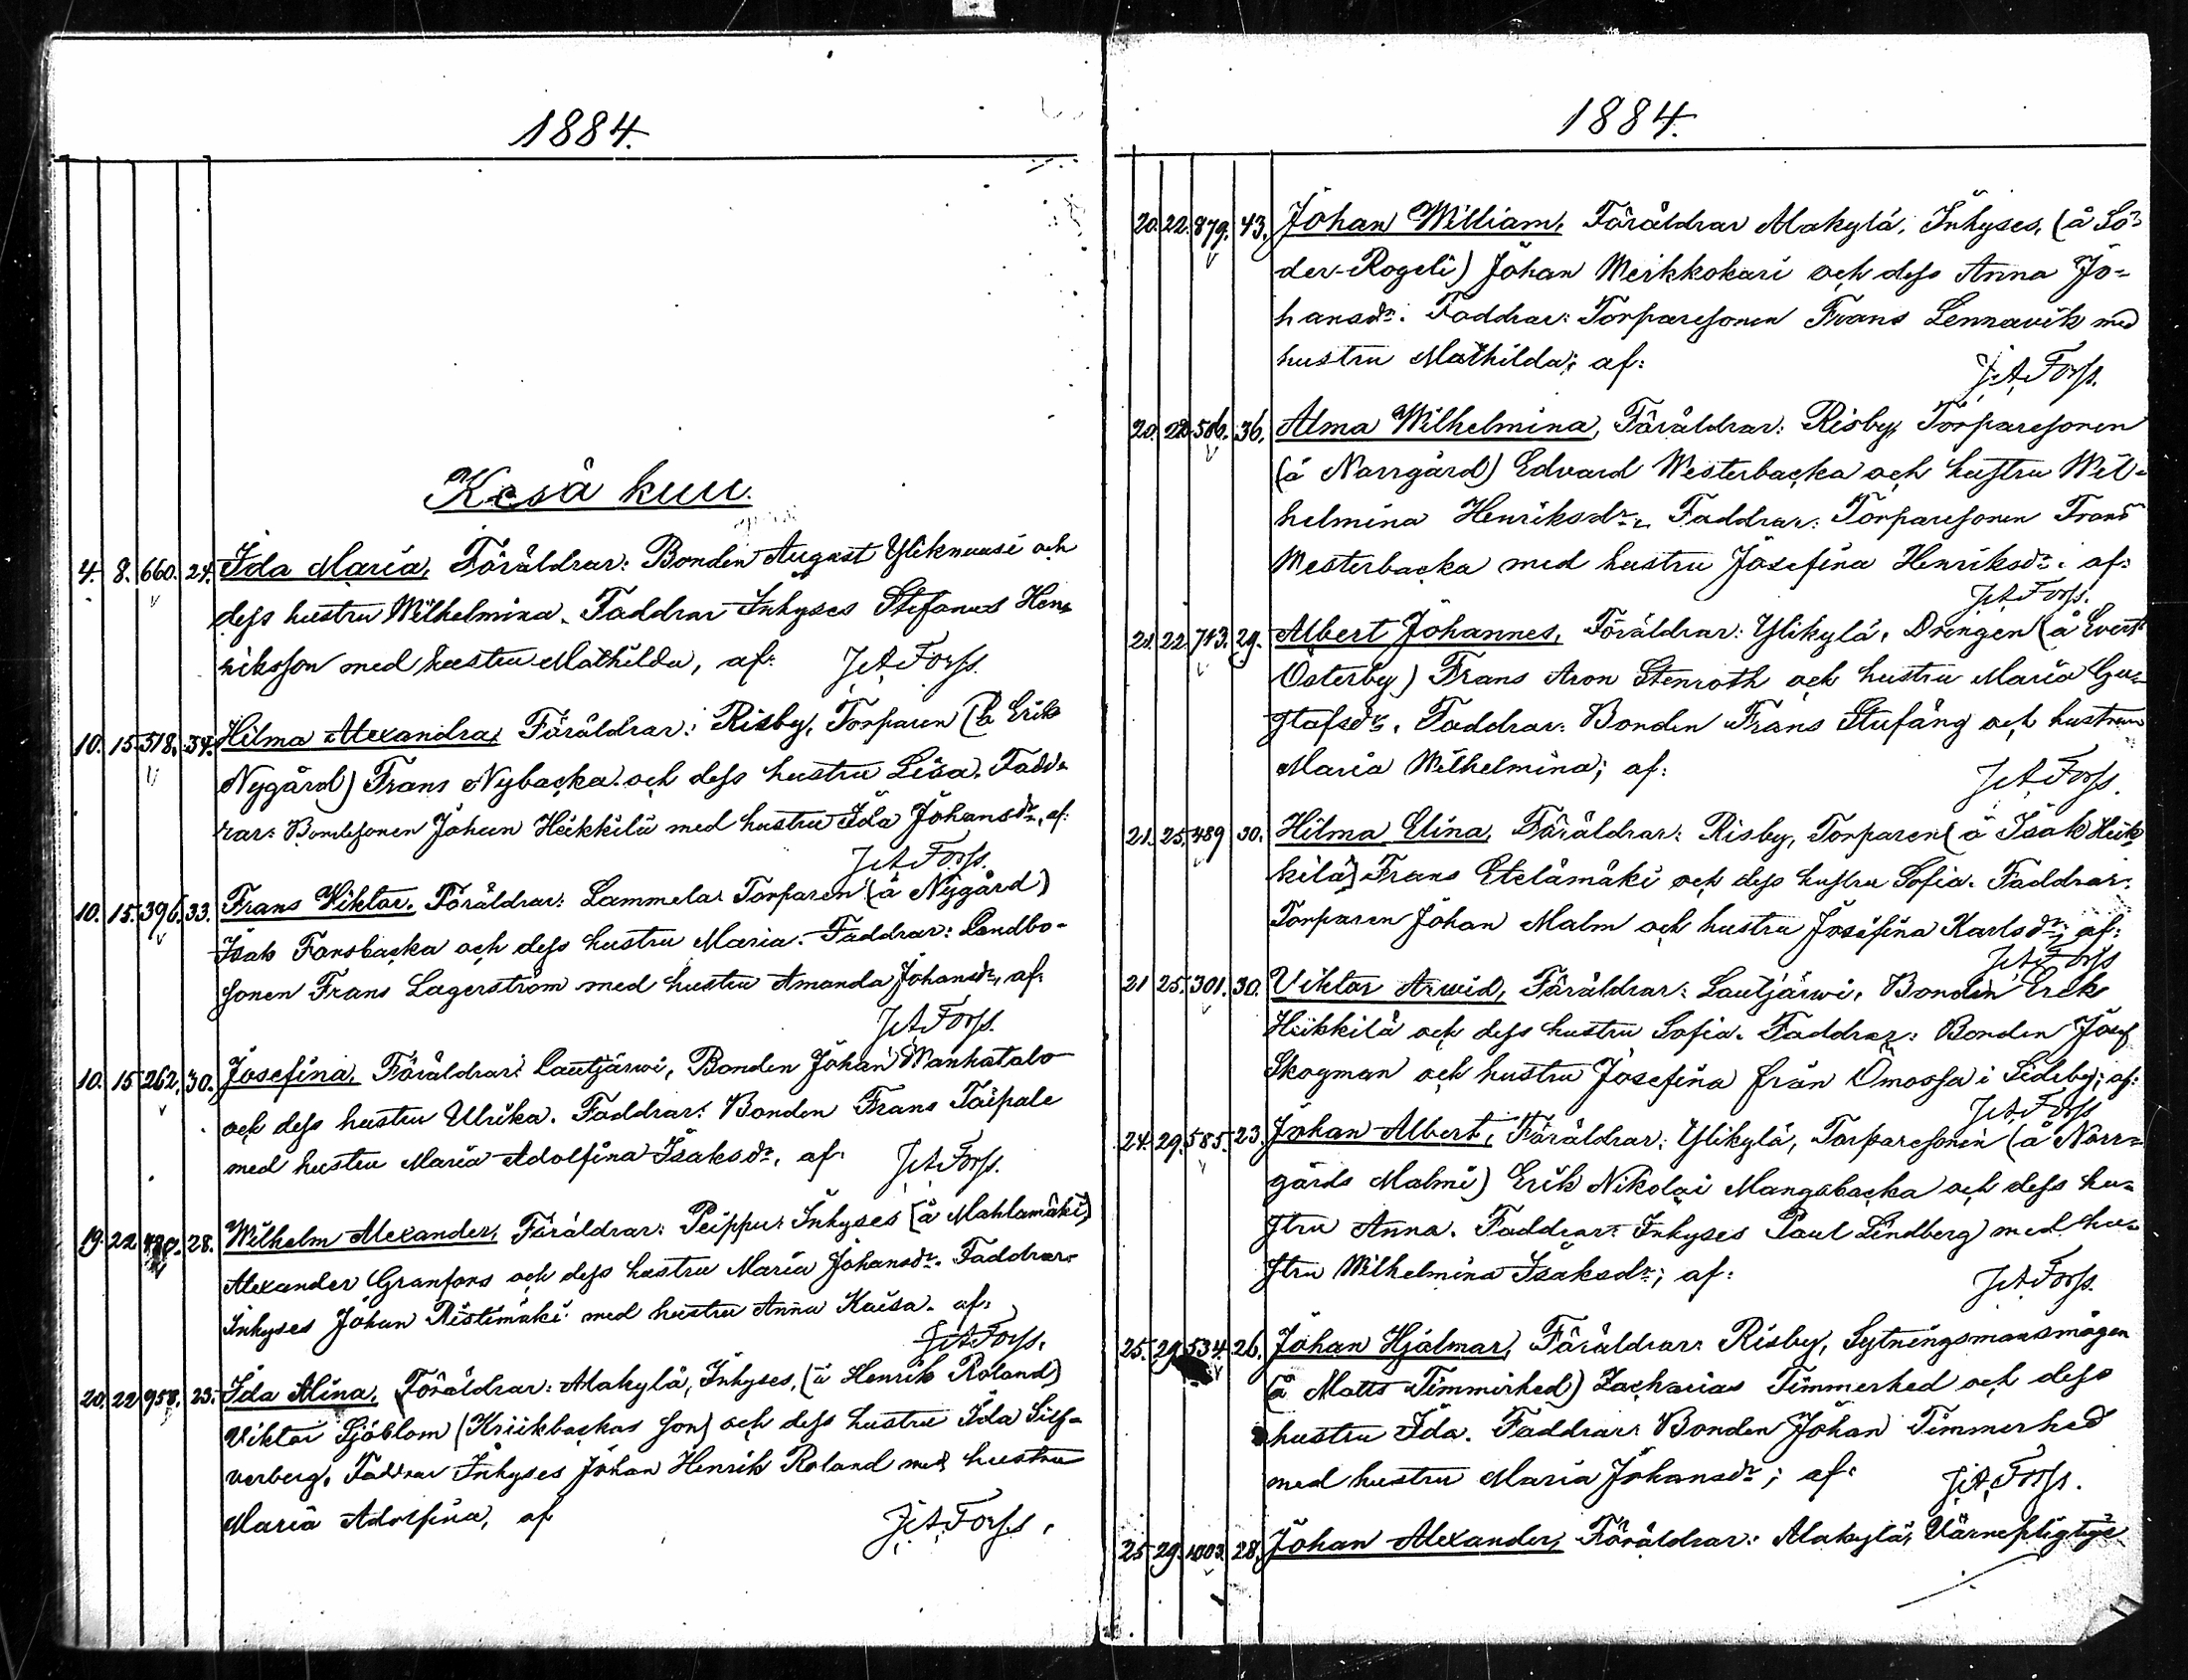 1884.
Kesä kuu.
4. 8. 660. 24. Ida Maria, Föräldrar: Bonden August Yliknuusi och
dess hustru Wilhelmina. Faddrar Inhyses Stefanus Hen-
riksson med hustru Mathilda, af: J.A. Forss.
10. 15. 518. 34. Hilma Alexandra, Föräldrar: Risby, Torparen (å Eriks
Nygård) Frans Nybacka och dess hustru Lisa. Fadd-
rar: Bondesonen Johan Heikkilä med hustru Ida Johansdr, af:
J.A. Forss.
10. 15. 396. 33. Frans Viktor. Föräldrar: Lammela Torparen (å Nygård)
Isak Forsbacka och dess hustru Maria. Faddrar: Landbo-
sonen Frans Lagerström med hustru Amanda Johansdr, af:
J.A. Forss.
10. 15 262. 30. Josefina. Föräldrar: Lautjärwi, Bonden Johan Wanhatalo
och dess hustru Ulrika. Faddrar: Bonden Frans Taipale
med hustru Maria Adolfina Isaksdr, af: J.A. Forss.
19. 22 28. Wilhelm Alexander, Föräldrar: Peippu. Inhyses (å Mahlamäki)
Alexander Granfors och dess hustru Maria Johansdr. Faddrar:
Inhyses Johan Ristimäki med hustru Anna Kaisa. af:
J.A. Forss.
20. 22 958. 23. Ida Alina. Föräldrar: Alakylä, Inhyses, (å Henrik Roland)
Viktor Sjöblom (Kriikbackas son) och dess hustru Ida Silf-
verberg. Faddrar Inhyses Johan Henrik Roland med hustru
Maria Adolfina, af J.A. Forss.
1884.
20. 22. 879. 43. Johan William, Föräldrar Alakylä, Inhyses, (å Sö-
der-Rogeli) Johan Merikkokari och dess Anna Jo-
hansdr. Faddrar: Torparesonen Frans Lennavik med
hustru Mathilda; af: J.A. Forss.
20. 22 586. 36. Alma Wilhelmina, Föräldrar: Risby, Torparesonen
(å Norrgård) Edvard Westerbacka och hustru Wil-
helmina Henriksdr. Faddrar: Torparesonen Frans
Westerbacka med hustru Josefina Henriksdr. af:
J.A. Forss.
21. 22 713. 29. Albert Johannes, Föräldrar: Ylikylä, Drengen (å Evert
Österby) Frans Aron Stenroth och hustru Maria Gu-
stafsdr. Faddrar: Bonden Frans Stufäng och hustrun
Maria Wilhelmina; af: J.A. Forss.
21. 25. 489 30. Hilma Elina, Föräldrar: Risby, Torparen (å Isak Heik-
kilä) Frans Etelämäki och dess hustru Sofia. Faddrar:
Torparen Johan Malm och hustru Josefina Karlsdr; af:
J.A. Forss
21 25. 301. 30. Viktor Arwid, Föräldrar: Lautjärwi, Bonden Erik
Heikkilä och dess hustru Sofia. Faddrar: Bonden Josef
Skogman och hustru Josefina från Ömossa i Sideby; af:
J.A. Forss
24. 29. 585. 23. Johan Albert, Föräldrar: Ylikylä, Torparesonen (å Norr-
gårds Malmi) Erik Nikolai Mangsbacka och dess hu-
stru Anna. Faddrar: Inhyses Paul Lindberg med hu-
stru Wilhelmina Isaksdr; af: J.A. Forss.
25. 29. 534. 26. Johan Hjalmar, Föräldrar: Risby, Sytningsmansmågen
(å Matts Timmerhed) Zacharias Timmerhed och dess
hustru Ida. Faddrar: Bonden Johan Timmerhed
med hustru Maria Johansdr; af: J.A. Forss.
25 29. 1003. 28. Johan Alexander, Föräldrar: Alakylä, Värnepligtige